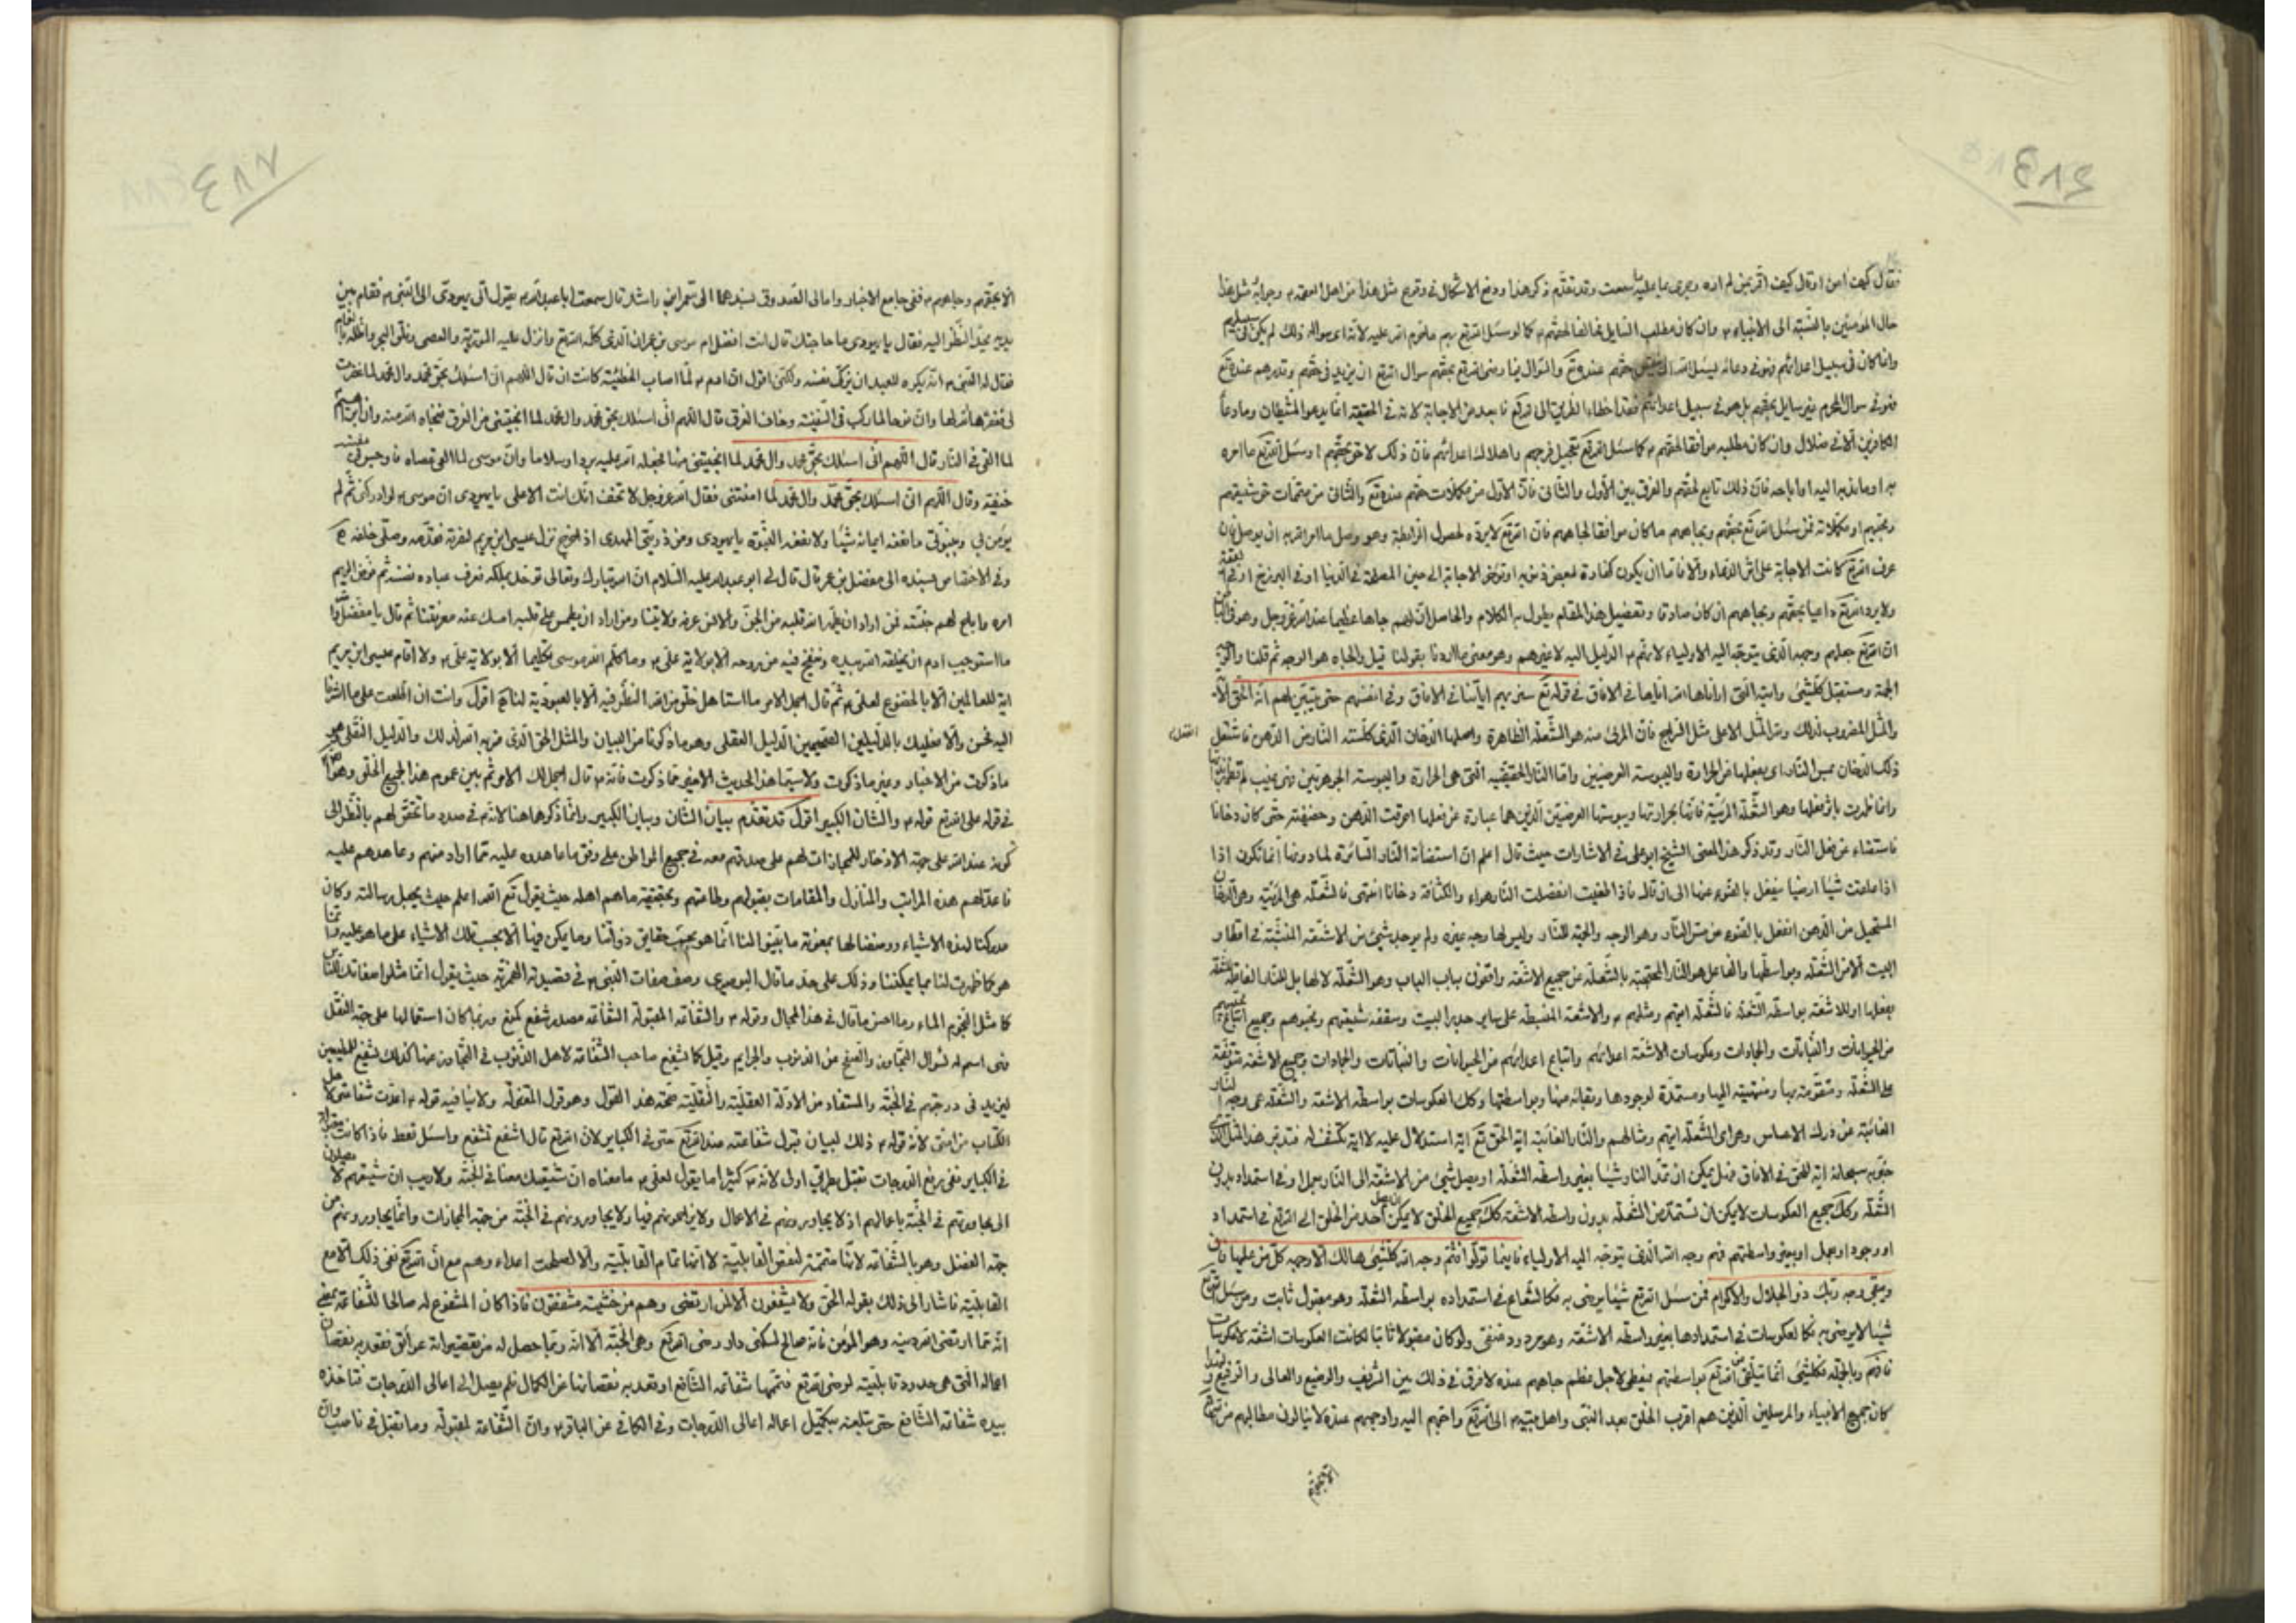 فقال كيف امن او قال كيف اقر بمن لم اره ويجرى ما عليه سمعت وقد تقدم ذكر هذا ودفع الاشكال فى وقوع مثل هذا من اهل العصمة وجوابه مثل هذا
حال المؤمنين بالنسبة الى الانبياء وان كان مطلب السايل مخالفا لحقهم كما لو سئل الله تع بهم ما حرم الله عليه لانه اى سواله ذلك لم يكن فى سبيلهم
وانما كان فى سبيل اعدائهم فهو فى دعائه يسئل الله حقهم عنده تع والسؤال بما رضى الله تع بحقهم سوال الله تع ان يزيد فى حقهم وقدرهم عنده تع
فهو فى سوال المحرم غير سايل بحقهم بل هو فى سبيل اعدائهم فقد اخطاء الطريق الى قربهم فابعد من الاجابة لانه فى الحقيقة انما يدعو الشيطان وما دعاء
الكافرين الا فى ضلال وان كان مطلبه موافقا لحقهم كما سئل الله تع تعجيل فرجهم واهلاك اعدائهم فان ذلك لاحق بحقهم او سئل الله تع ما امره
به او ما ندبه اليه او اباحه فان ذلك تابع لحقهم والفرق بين الاول والثانى فان الاول من مكملات حقهم عنده تع والثانى من متممات حق شيعتهم
ومحبيهم او مكملاته فمن سئل الله تع بحقهم وبجاههم ما كان موافقا لجاههم فان الله تع لا يرده لحصول الرابطة وهو وصل ما امر الله به ان يوصل فان
عرف الله تع كانت الاجابة على اثر الدعاء والا فاما ان يكون كفارة لبعض ذنوبه او تؤخر الاجابة الى حين المصلحة فى الدنيا او فى البرزخ او فى
ولا يرد الله تع داعيا بحقهم وبجاههم ان كان صادقا وتفصيل هذا المقام يطول به الكلام والحاصل ان لهم جاها عظيما عند الله عز وجل وهو فى
ان الله تع جعلهم وجهه الذى يتوجه اليه الاولياء لانهم الدليل اليه لا غيرهم وهو معنى ما اردنا بقولنا قيل والجاه هو الوجه ثم قلنا
الجهة ومستقبل كل شئ وايته التى اراناها اراناها فى الافاق فى قوله تع سنريهم اياتنا فى الافاق وفى انفسهم حتى يتبين لهم انه الحق
والمثل المضروب لذلك ولله المثل الاعلى مثل السراج فان المرئى منه هو الشعلة الظاهرة واصلها الدخان الذى كلسته النار من الدهن فاشتعل
ذلك الدخان بمس النار اى بفعلها من الحرارة واليبوسة العرضيين واما النار الحقيقية التى هى الحرارة واليبوسة الجوهريتين فهى غيب لم
وانما ظهرت باثر فعلها وهو الشعلة المرئية فانها بحرارتها ويبوستها العرضيتين الذين هما عبارة عن فعلها احرقت الدهن وجففته حتى كان دخانا
فاستضاء عن فعل النار وقد ذكر هذا المعنى الشيخ ابو على فى الاشارات حيث قال اعلم ان استضائة النار الساترة لما ورائها انما تكون اذا
اذا علقت شيئا ارضيا ينفعل بالضوء عنها الى ان قال فاذا اطفيت انفصلت النار هواء والكثافة دخانا انتهى فالشعلة هى المرئية وهو الدخان
المستحيل من الدهن انفعل بالضوء من مس النار وهو الوجه والجهة للنار وليس لها وجه غيره ولم يوجد شئ من الاشعة المنبثة فى اقطار
البيت الا من الشعلة وبواسطتها والفاعل هو النار المحتجبة بالشعلة عن جميع الاشعة واقفون بباب الباب وهو الشعلة لا لها بل للنار الفاعلة
بفعلها او للاشعة بواسطة الشعلة فالشعلة ايتهم ومثلهم والاشعة المنبسطة على ساير جدر البيت وسقفه شيعتهم ومحبوهم وجميع
من الحيوانات والنباتات والجمادات وعكوسات الاشعة اعدائهم واتباع اعدائهم من الحيوانات والنباتات والجمادات وجميع الاشعة متوقفة
على الشعلة ومتقومة بها ومنتهية اليها ومستمدة لوجودها وبقائه منها وبواسطتها وكك العكوسات بواسطة الاشعة والشعلة هى وجه النار
الغائبة عن درك الاحساس وهو اى الشعلة ايتهم ومثالهم والنار الغائبة اية الحق تع اية استدلال عليه لا اية تكشف له فتدبر هذا المثل الذى
ضربه سبحانه اية للحق فى الافاق فهل يمكن ان تمد النار شيئا بغير واسطة الشعلة او يصل شئ من الاشعة الى النار بعمل او فى استمداد بدون
الشعلة وكك جميع العكوسات لا يمكن ان تستمد من الشعلة بدون واسطة الاشعة كك جميع الخلق لا يمكن ان يصل احد من الخلق الى الله تع فى استمداد
او وجود او عمل او بغير واسطتهم فهم وجه الله الذى يتوجه اليه الاولياء فاينما تولوا فثم وجه الله كل شئ هالك الا وجهه كل من عليها فان
ويبقى وجه ربك ذو الجلال والاكرام فمن سئل الله تع شيئا يرضى به فكالشعاع فى استمداده بواسطة الشعلة وهو مقبول ثابت ومن سئل الله تع
شيئا لا يرضى به فكالعكوسات فى استمدادها بغير واسطة الاشعة وهو مردود منفى ولو كان مقبولا ثابتا لكانت العكوسات اشعة لا عكوسات
فافهم وبالجملة فكل شئ انما يتلقى من الله تع بواسطتهم فيعطى لاجل عظم جاههم عنده لا فرق فى ذلك بين الشريف والوضيع والعالى والرفيع
كان جميع الانبياء والمرسلين الذين هم اقرب الخلق بعد النبى واهل بيته الى الله تع واحبهم اليه واوجههم عنده لا ينالون مطالبهم من
الا بحقهم
الا بحقهم وجاههم ففى جامع الاخبار وامالى الصدوق بسندهما الى معمر ابن راشد قال سمعت ابا عبد الله يقول اتى يهودى الى النبى فقام بين
يديه يحد النظر اليه فقال يا يهودى ما حاجتك قال انت افضل ام موسى بن عمران الذى كلمه الله تع وانزل عليه التورية والعصى وفلق البحر واظله بالغمام
فقال له النبى انه يكره للعبد ان يزكى نفسه ولكنى اقول ان ادم لما اصاب الخطيئة كانت ان قال اللهم انى اسئلك بحق محمد وال محمد لما غفرت
لى فغفرها الله لها وان نوحا لما ركب فى السفينة وخاف الغرق قال اللهم انى اسئلك بحق محمد وال محمد لما انجيتنى من الغرق فنجاه الله منه وان ابرهيم
لما القى فى النار قال اللهم انى اسئلك بحق محمد وال محمد لما انجيتنى منها فجعله الله عليه بردا وسلاما وان موسى لما القى عصاه فاوجس فى نفسه
خيفة وقال اللهم انى اسئلك بحق محمد وال محمد لما امنتنى فقال الله عز وجل لا تخف انك انت الاعلى يا يهودى ان موسى لو ادركنى ثم لم
يؤمن بى وبنبوتى ما نفعه ايمانه شيئا ولا نفعته النبوة يا يهودى ومن ذريتى المهدى اذا خرج نزل عيسى ابن مريم لنصرته فقدمه وصلى خلفه
وفى الاختصاص بسنده الى مفضل بن عمر قال قال لى ابو عبد الله عليه السلام ان الله تبارك وتعالى توحد بملكه فعرف عباده نفسه ثم فوض اليهم
امره واباح لهم جنته فمن اراد ان يطهر الله قلبه من الجن والانس عرفه ولايتنا ومن اراد ان يطمس على قلبه امسك عنه معرفتنا ثم قال يا مفضل والله
ما استوجب ادم ان يخلقه الله بيده وينفخ فيه من روحه الا بولاية على وما كلم الله موسى تكليما الا بولاية على ولا اقام عيسى ابن مريم
اية للعالمين الا بالخضوع لعلى ثم قال اجمل الامر ما استاهل خلق من الله النظر فيه الا بالعبودية لنا اقول وانت ان اطلعت على ما اشرنا
اليه فحسن والا فعليك بالدليلين الصحيحين الدليل العقلى وهو ما ذكرنا من البيان والمثل الحق الذى ضربه الله لذلك والدليل النقلى
ما ذكرت من الاخبار وغير ما ذكرت ولا سيما هذا الحديث الاخير مما ذكرت فانه قال اجمل لك الامر ثم بين عموم هذا لجميع الخلق وهو
فى قوله على الله تع قوله والشان الكبير اقول قد تقدم بيان الشان وبيان الكبير وانما ذكرها هنا لانه فى صدد ما تحقق لهم بالنظر الى
كونه عند الله على جهة الادخار للمجازات لهم على صدقهم معه فى جميع المواطن على وفق ما عاهدوه عليه مما اراد منهم وعاهدهم عليه
فاعد لهم هذه المراتب والمنازل والمقامات بقبولهم وطاعتهم وبحقيقة ما هم اهله حيث يقول تع الله اعلم حيث يجعل رسالته وكان
مدركنا لهذه الاشياء ووصفنا لها بمعونة ما بينوا لنا انما هو بحسب حقايق ذواتنا وما يمكن فينا لا بحسب تلك الاشياء على ما هو عليه
هو كما ظهرت لنا مما يمكننا وذلك على حد ما قال البوصيرى وصف صفات النبى فى قصيدته الهمزية حيث يقول انما مثلوا صفاتك للناس
كما مثل النجوم الماء وما احسن ما قال فى هذا المجال وقوله والشفاعة المقبولة الشفاعة مصدر شفع كمنع وربما كان استعمالها على جهة النقل
فهى اسم لسؤال التجاوز والصفح عن الذنوب والجرايم وقيل كما يشفع صاحب الشفاعة لاهل الذنوب فى التجاوز عنها كذلك يشفع للمطيعين
ليزيد فى درجتهم فى الجنة والمستفاد من الادلة العقلية والنقلية صحة هذا القول وهو قول المفضلة ولا ينافيه قوله اعددت شفاعتى لاهل
الكبائر من امتى لانه قوله ذلك لبيان قبول شفاعته عند الله تع حتى فى الكبائر لان الله تع قال اشفع تشفع واسئل تعط فاذا كانت مقبولة
فى الكباير ففى رفع الدرجات تقبل بطريق اولى لانه كثيرا ما يقول لعلى ما معناه ان شيعتك معنا فى الجنة ولا ريب ان شيعتهم لا يصلون
الى مجاورتهم فى الجنة باعمالهم اذ لا يجاورونهم فى الاعمال ولا يزاحمونهم فيها ولا يجاورونهم فى الجنة من جهة المجازات وانما يجاورونهم من
جهة الفضل وهو بالشفاعة لانها متممة لنقص القابلية لا انها تمام القابلية والا لصلحت اعداء وهم مع ان الله تع نفى ذلك الا مع
القابلية فاشار الى ذلك بقوله الحق ولا يشفعون الا لمن ارتضى وهم من خشيته مشفقون فاذا كان المشفوع له صالحا للشفاعة بمعنى
انه مما ارتضى الله دينه وهو المؤمن فانه صالح لسكنى دار رضى الله تع وهى الجنة الا انه ربما حصل له من تقصيراته عوائق فقعد به نقصان
اعماله التى هى حدود قابليته لرضى الله تع فتممها شفاعة الشافع او تقعد به نقصانها عن الكمال فلم يصل الى اعالى الدرجات فتاخذه
بيده شفاعة الشافع حتى تبلغه بتكميل اعماله اعالى الدرجات وفى الكافى عن الباقر وان الشفاعة لمقبولة وما تقبل فى ناصب وان